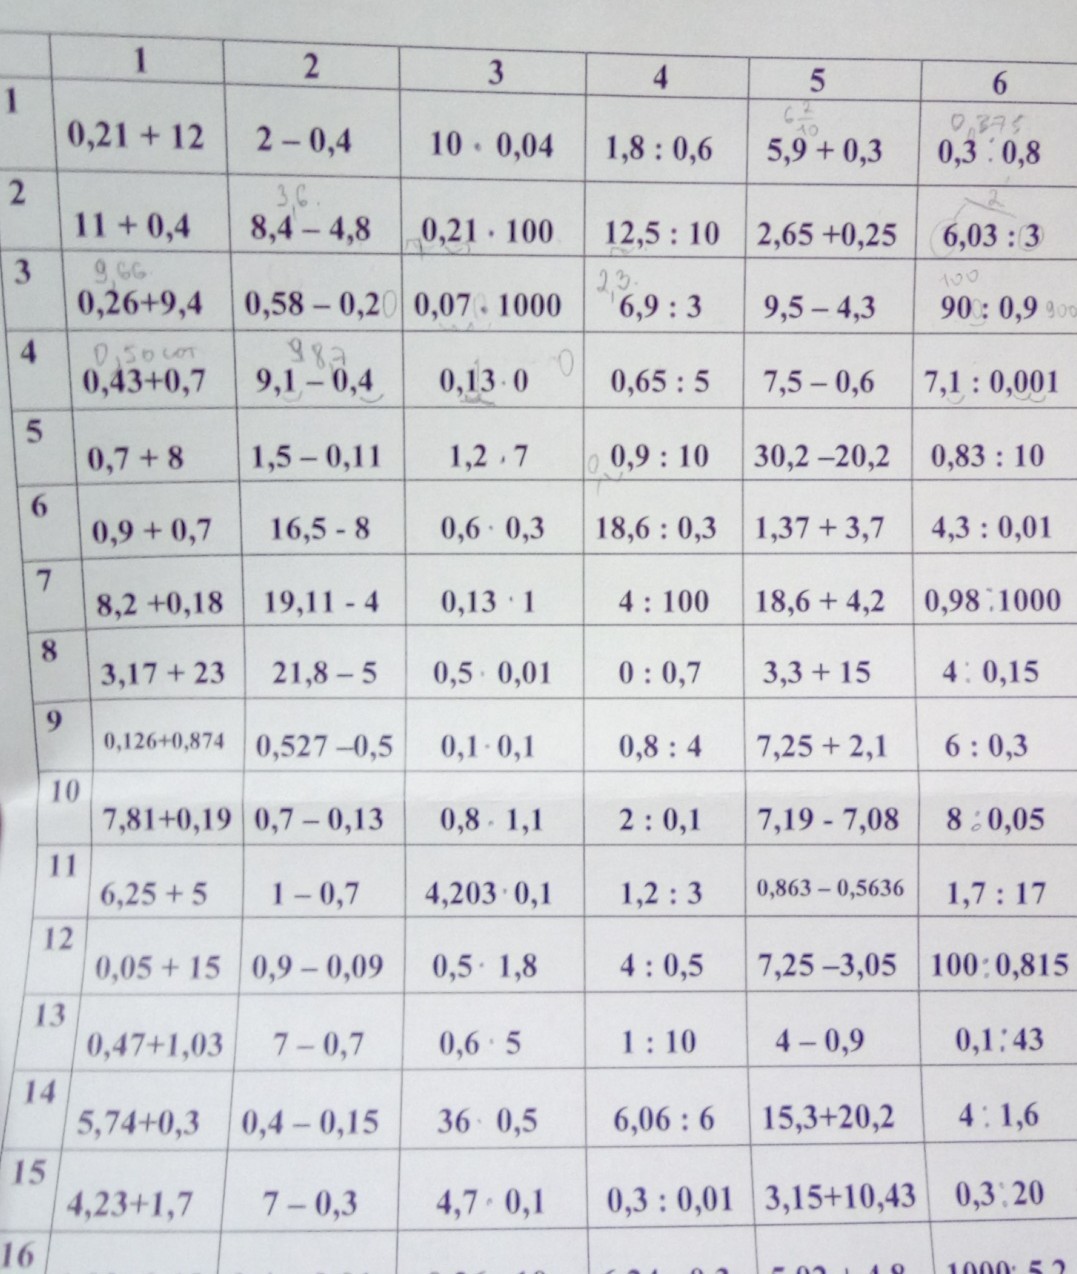 1 2 3 4 5 6
6 2/10 0,375
1 0,21 + 12 2 – 0,4 10 · 0,04 1,8 : 0,6 5,9 + 0,3 0,3 : 0,8
3,6 2
2 11 + 0,4 8,4 – 4,8 0,21 · 100 12,5 : 10 2,65 +0,25 6,03 : 3
9,66 2,3 100
3 0,26+9,4 0,58 – 0,20 0,07 · 1000 6,9 : 3 9,5 – 4,3 90 : 0,9 900
0
4 0,43+0,7 9,1 – 0,4 0,13 · 0 0,65 : 5 7,5 – 0,6 7,1 : 0,001
5 0,7 + 8 1,5 – 0,11 1,2 · 7 0,9 : 10 30,2 –20,2 0,83 : 10
6 0,9 + 0,7 16,5 - 8 0,6 · 0,3 18,6 : 0,3 1,37 + 3,7 4,3 : 0,01
7 8,2 +0,18 19,11 - 4 0,13 · 1 4 : 100 18,6 + 4,2 0,98 : 1000
8 3,17 + 23 21,8 – 5 0,5 · 0,01 0 : 0,7 3,3 + 15 4 : 0,15
9 0,126+0,874 0,527 –0,5 0,1 · 0,1 0,8 : 4 7,25 + 2,1 6 : 0,3
10 7,81+0,19 0,7 – 0,13 0,8 · 1,1 2 : 0,1 7,19 - 7,08 8 : 0,05
11 6,25 + 5 1 – 0,7 4,203 · 0,1 1,2 : 3 0,863 – 0,5636 1,7 : 17
12 0,05 + 15 0,9 – 0,09 0,5 · 1,8 4 : 0,5 7,25 –3,05 100 : 0,815
13 0,47+1,03 7 – 0,7 0,6 · 5 1 : 10 4 – 0,9 0,1 : 43
14 5,74+0,3 0,4 – 0,15 36 · 0,5 6,06 : 6 15,3+20,2 4 : 1,6
15 4,23+1,7 7 – 0,3 4,7 · 0,1 0,3 : 0,01 3,15+10,43 0,3 : 20
16